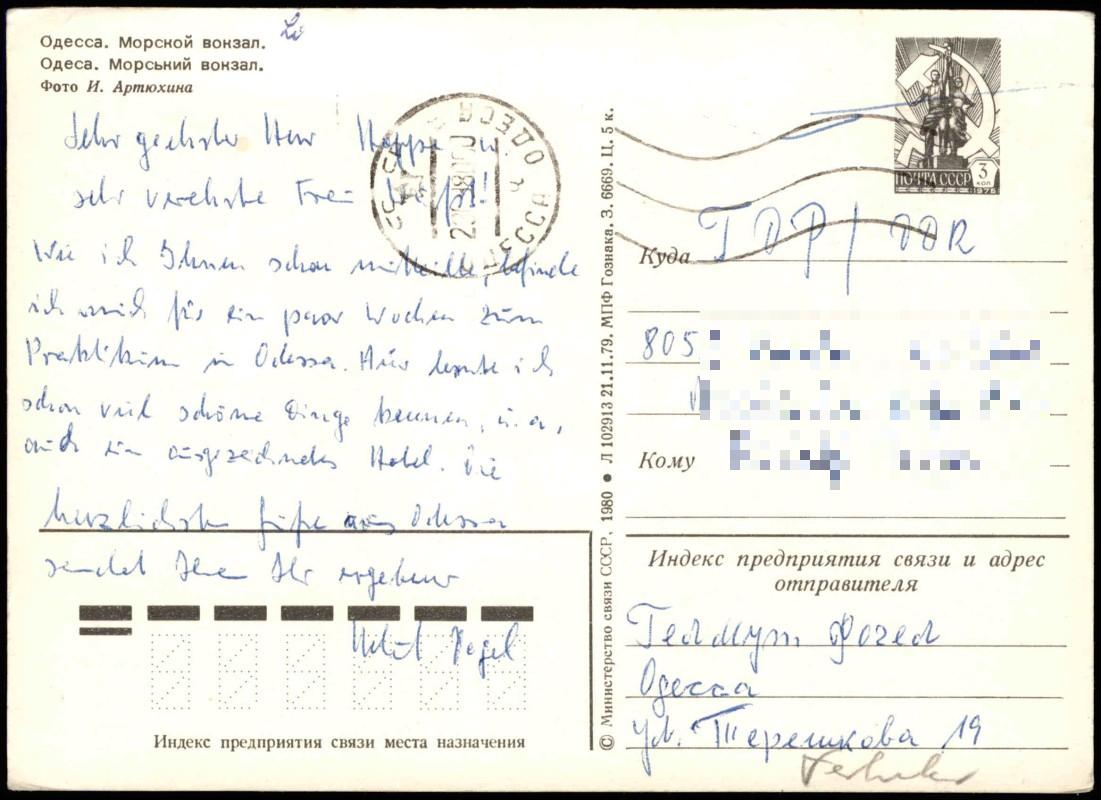 Одесса. Морской вокзал.
Одеса. Морський вокзал.
Фото И. Артюхина
Sehr geehrter Herr Hoppe u.
sehr verehrte Frau
Wie ich Ihnen schon mitteilte, befinde
ich mich für ein paar Wochen zum
Praktikum in Odessa. Hier lernte ich
schon viel schöne Dinge kennen, u.a.
auch ein ausgezeichnetes Hotel. Die
herzlichsten Grüße aus Odessa
sendet Ihnen Ihr ergebener
Helmut Vogel
Индекс предприятия связи места назначения
© Министерство связи СССР, 1980 • Л 102913 21.11.79. МПФ Гознака. З. 6669. Ц. 5 к.
СССР
ОДЕССА
ПОЧТА СССР 3 коп
1976
Куда ГДР / DDR
805
Кому
Индекс предприятия связи и адрес
отправителя
Гелмут Фогел
Одесса
ул. Терешкова 19